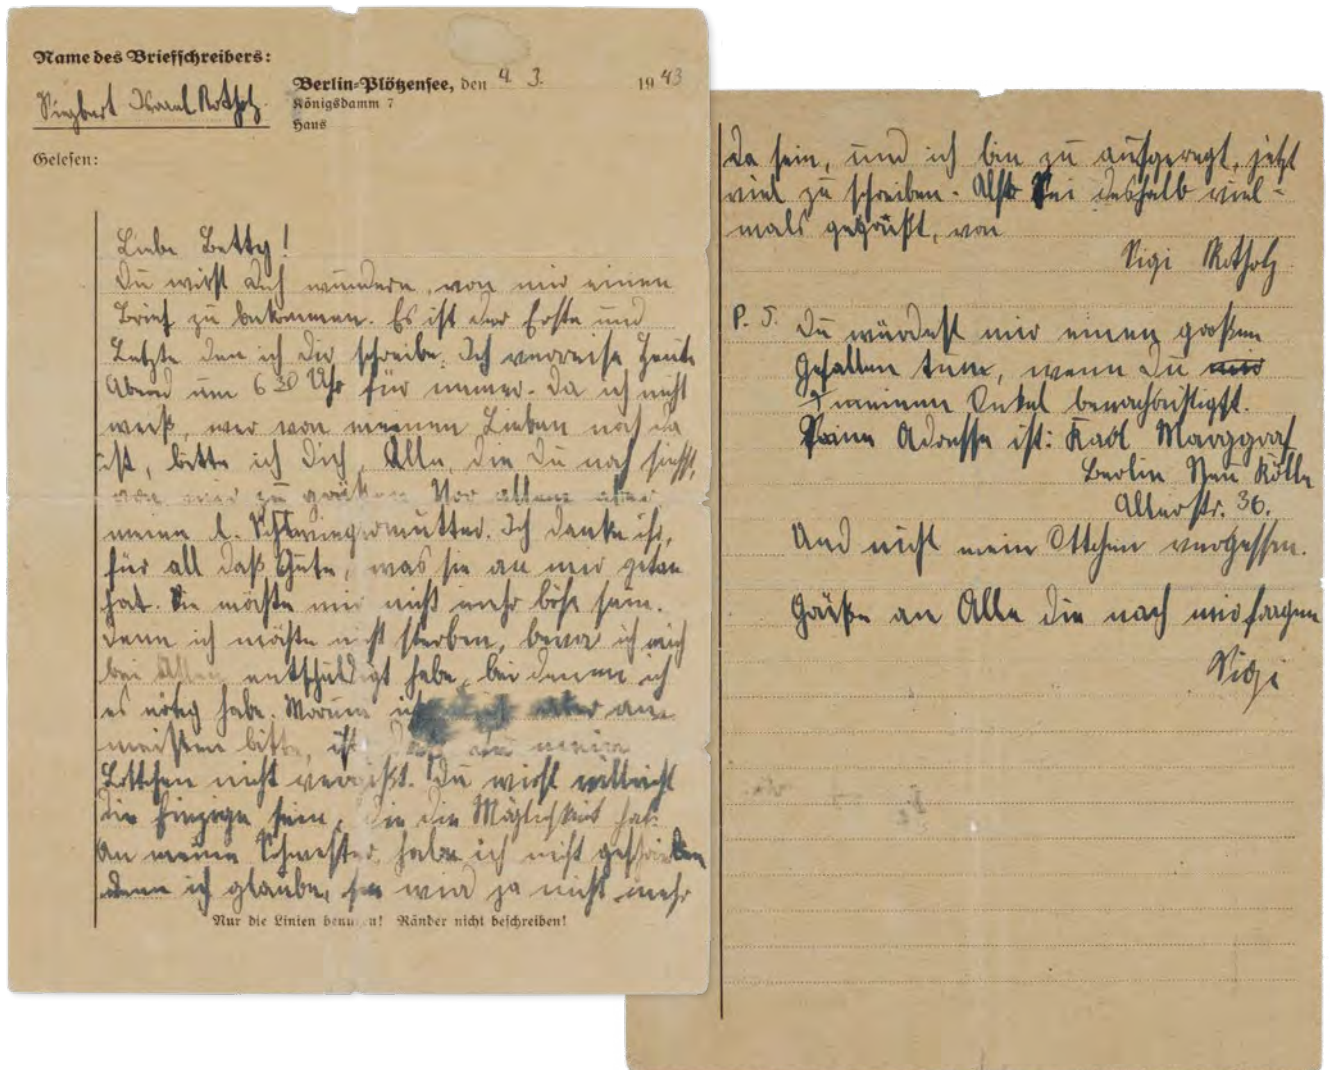 Name des Briefschreibers:
Siegbert Israel Rotholz.
Berlin-Plötzensee, den 4. 3. 1943
Königsdamm 7
Haus
Gelesen:
Liebe Betty!
Du wirst Dich wundern, von mir einen
Brief zu bekommen. Es ist der Erste und
Letzte den ich Dir schreibe. Ich verreise Heute
Abend um 6 30 Uhr für immer. Da ich nicht
weiß, wer von meinen Lieben noch da
ist, bitte ich Dich, Alle, die Du noch siehst,
von mir zu grüßen. Vor allem aber
meine l. Schwiegermutter. Ich danke ihr,
für all daß Gute, was sie an mir getan
hat. Sie möchte mir nicht mehr böse sein.
Denn ich möchte nicht sterben, bevor ich mich
bei Allen entschuldigt habe, bei denen ich
es nötig habe. Worum ich aber am
meisten bitte, ist daß du mein
Lottchen nicht vergißt. Du wirst vielleicht
die Einzige sein, die die Möglichkeit hat.
An meine Schwester habe ich nicht geschrieben
denn ich glaube, sie wird ja nicht mehr
Nur die Linien benutzen! Ränder nicht beschreiben!
da sein, und ich bin zu aufgeregt, jetzt
viel zu schreiben. Also sei deshalb viel-
mals gegrüßt, von
Sigi Rotholz
P. S. Du würdest mir einen großen
Gefallen tun, wenn Du mir
meinen Onkel benachrichtigst.
Seine Adresse ist: Karl Marggraf
Berlin Neu Kölln
Allerstr. 36.
Und nicht mein Lottchen vergessen.
Grüße an Alle die nach mir fragen
Sigi